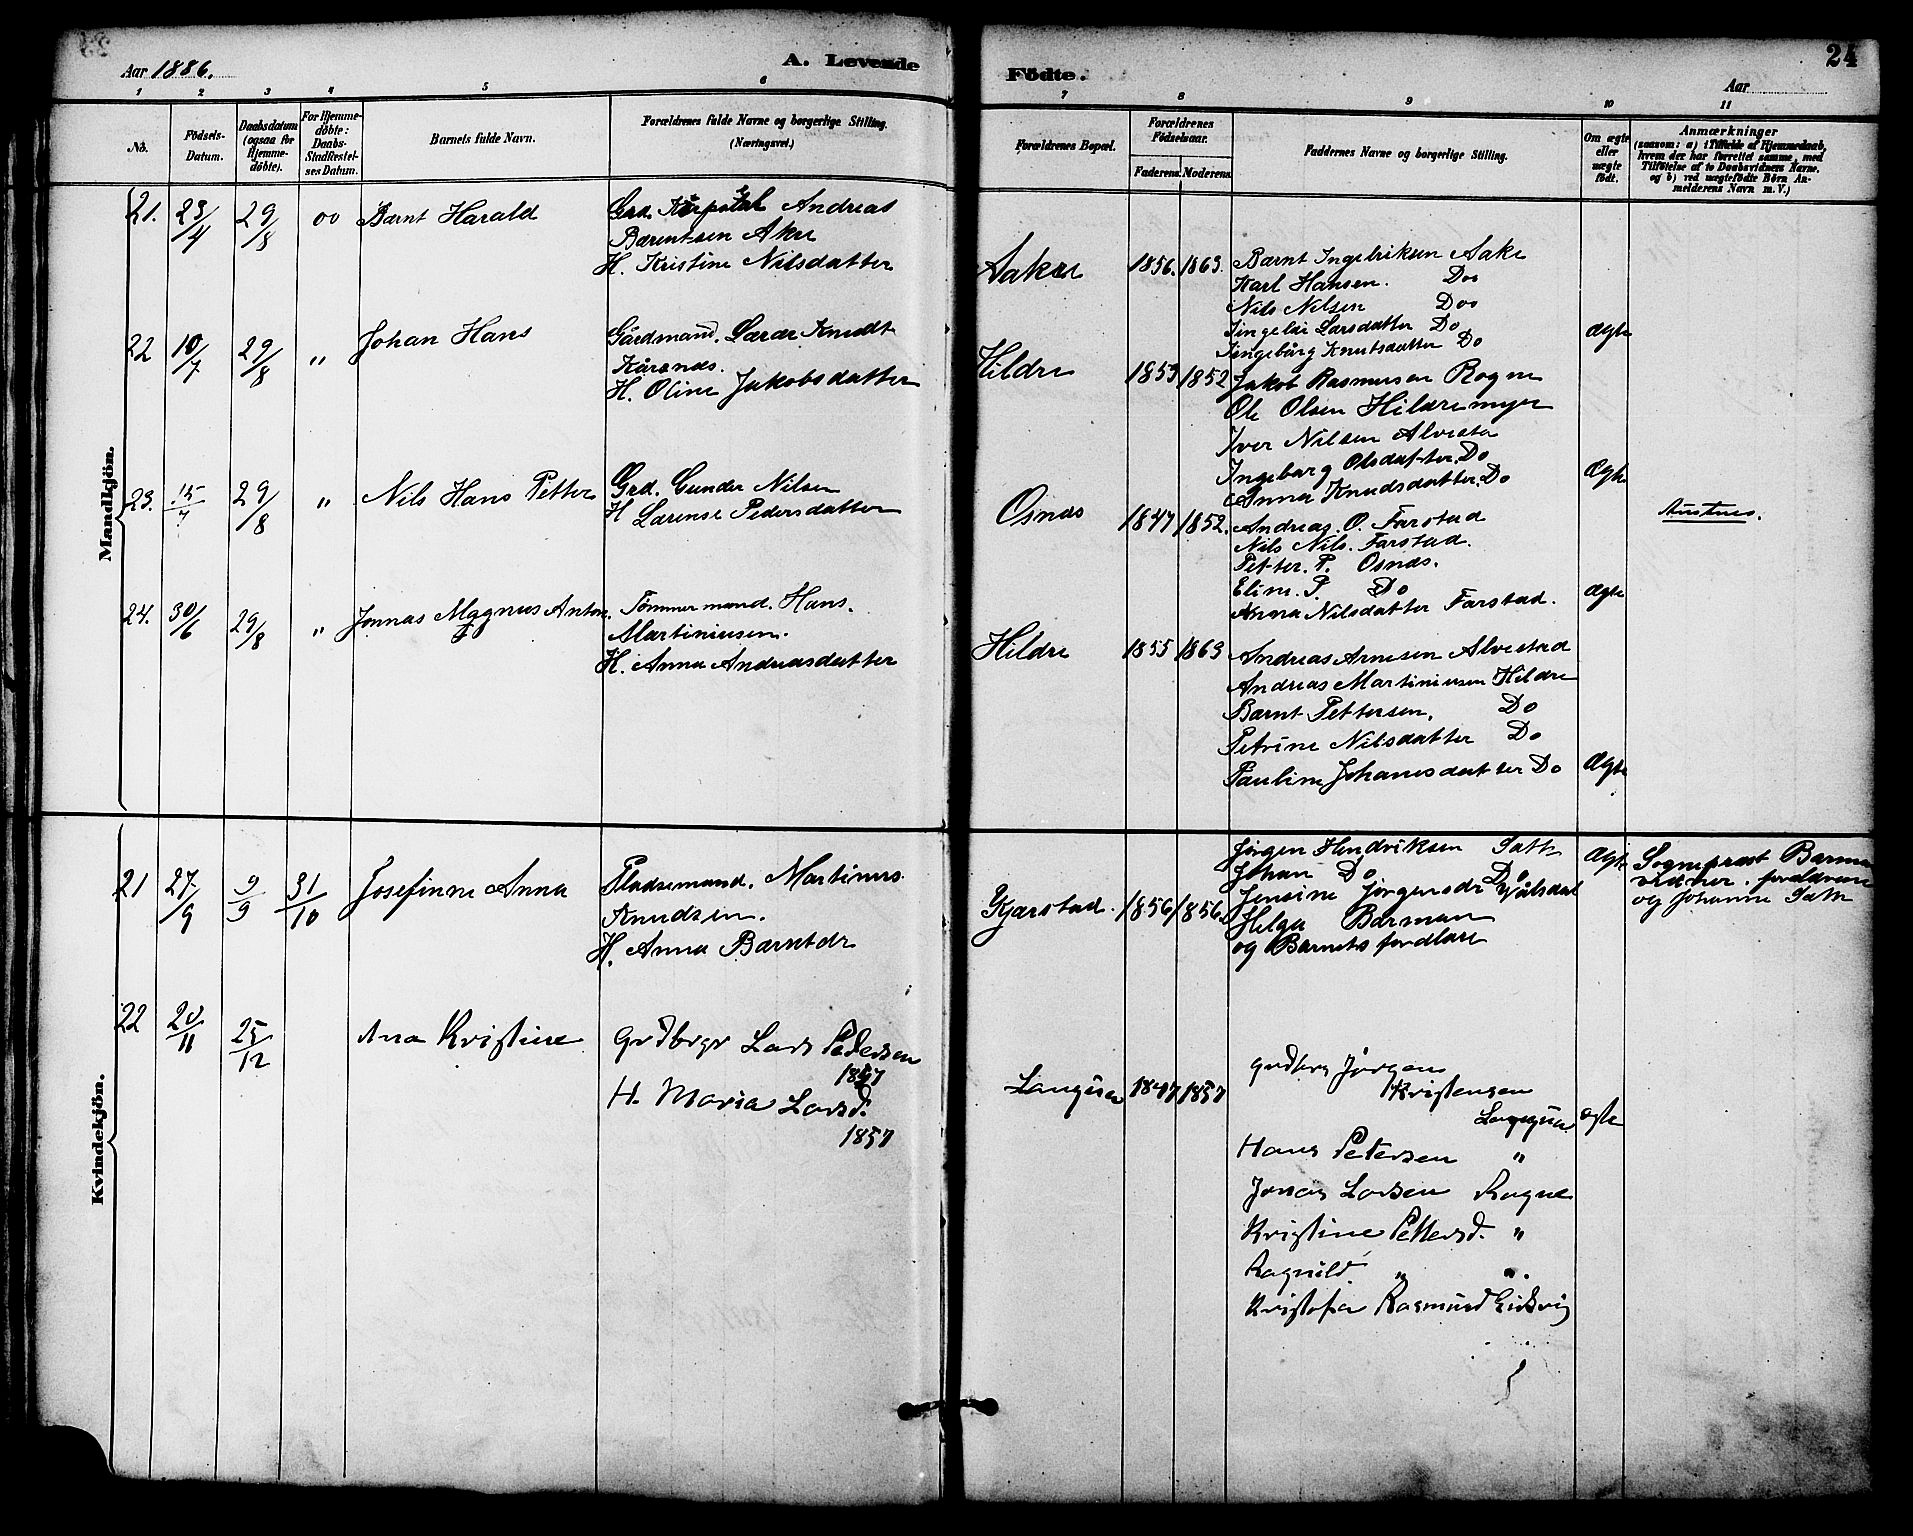 Aar 1886.
A. Levende
1 2 3 4 5 6
No.
Födsels-
Datum.
Daabsdatum
(ogsaa for
Hjemme-
døbte).
For Hjemme-
døbte:
Daabs-
Stadfæstel-
ses Datum.
Barnets fulde Navn.
Forældrenes fulde Navne og borgerlige Stilling.
(Næringsvei.)
Mandkjön.
21. 23/4 29/8 00 Bærnt Harald
Grd. Andreas
Bærentsen Akre
H. Kristine Nilsdatter
22 10/7 29/8 " Johan Hans
Gårdmand. Lærer Knudt
H. Oline Jakobsdatter
23. 15/7 29/8 " Nils Hans Petter
Grd. Gunder Nilsen
H Lærense Pedersdatter
24. 30/6 29/8 " Jonnas Magnus Anton.
Tømmermand. Hans.
Martiniusen.
H. Anna Andreasdatter
Kvindekjön.
21 27/9 9/9 31/10 Josefinne Anna
Pladsemand. Martinus
Knudsen.
H. Anna Bærntdr
22 20/11 25/12 Ana Kristine
Grdbrgr Lars Pedersen
1847
H. Maria Larsd.
1857
Födte.
24
Aar
7 8 9 10 11
Forældrenes Bopæl.
Forældrenes
Födselsaar.
Faderens. Moderens.
Faddernes Navne og borgerlige Stilling.
Om ægte
eller
uægte
födt.
Anmærkninger
(saasom: a) i Tilfælde af Hjemmedaab,
hvem der har forrettet samme, med
Tilföielse af to Daabsvidners Navne.
og b) ved uægtefødte Börn An-
melderens Navn m. V.)
Aakre 1856. 1863. Bærnt Ingebriksen Aakre
Karl Hansen. Do
Nils Nilsen Do
Larsdatter Do Ægte
Ingebårg Knutsdatter Do
Hildre 1853 1852 Jakob Rasmusen Rogne
Ole Olsen Hildremyr
Iver Nilsen Alvestad
Ingeborg Olsdatter. Do
Anna Knudsdatter. Do Ægte
Osnæs 1847 1852. Andreas. O. Farstad
Nils Nils. Farstad.
Petter. P. Osnæs.
Eline. P. Do
Anna Nilsdatter Farstad. Ægte
Austnes.
Hildre 1855 1863 Andreas Arnesen Alvestad
Andreas Martiniusen Hildre
Bærnt Pettersen. Do
Petrine Nilsdatter Do
Pauline Johanesdatter Do Ægte
Kjærstad. 1856 1856. Jørgen Hendriksen Sætre
Johan Do Do
Jensine Jørgensdr
Helga Barman
og Barnets forældre
Ægte Sogneprest Barman
vidner. forældrene
og Johanne Sætre
Longva 1847 1857 Grdbrs Jørgen
Kristensen
Longva ægte
Hans Petersen "
Jonas Larsen Rogne
Kristine Pettersd. "
Ragnild " "
Kristofer Rasmusd